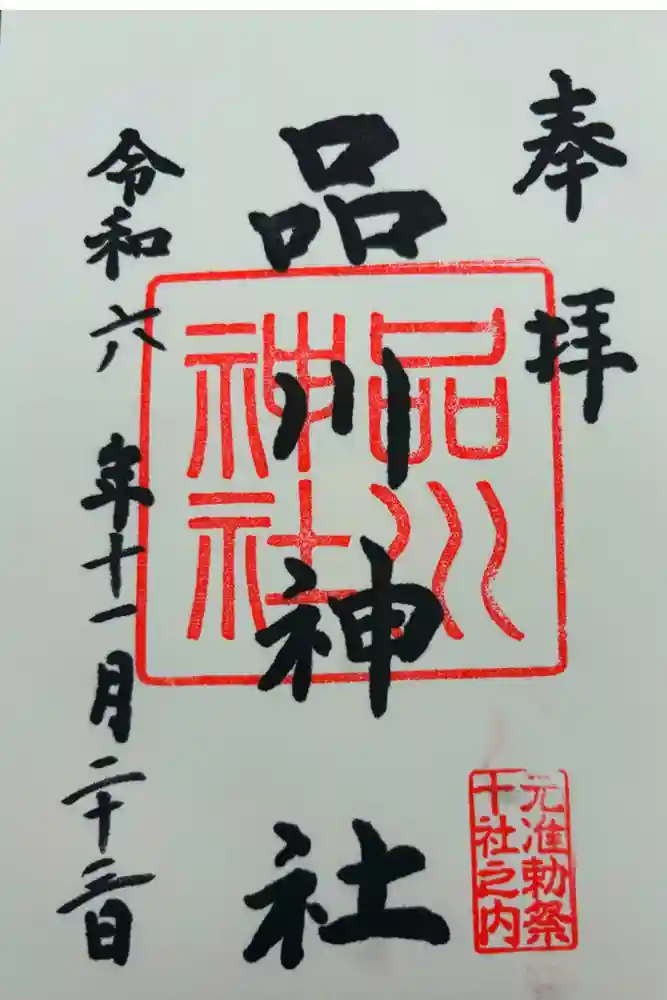 奉拝
品川神社
品川
神社
元准勅祭
十社之内
令和六年十一月二十三日